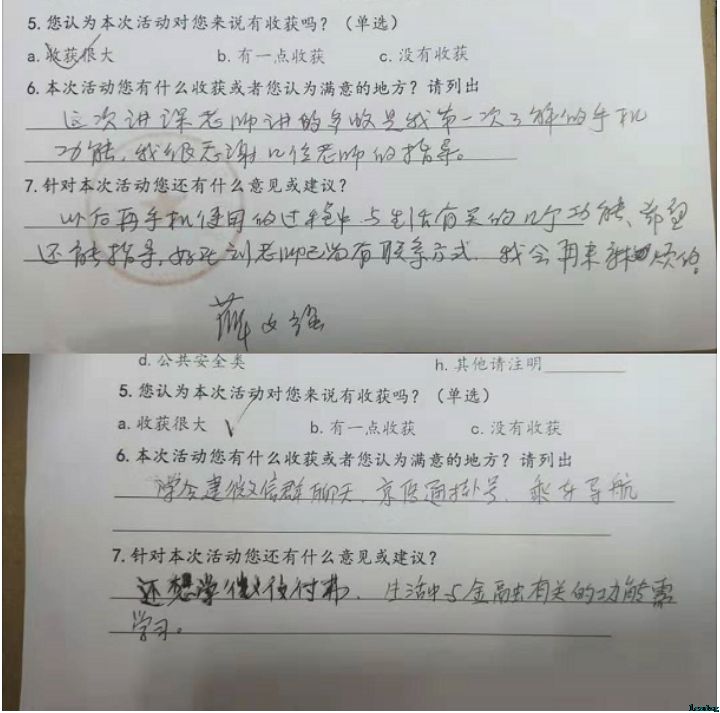 5. 您认为本次活动对您来说有收获吗？（单选）
a. 收获很大 b. 有一点收获 c. 没有收获
6. 本次活动您有什么收获或者您认为满意的地方？请列出
这次讲课老师讲的 是我第一次了解的手机
功能，我很感谢几位老师的指导。
7. 针对本次活动您还有什么意见或建议？
以后再手机使用的过程中与生活有关的几个功能、希望
还能指导，好 到老师已留有联系方式，我会再来麻烦的。
d. 公共安全类 h. 其他请注明
5. 您认为本次活动对您来说有收获吗？（单选）
a. 收获很大 b. 有一点收获 c. 没有收获
6. 本次活动您有什么收获或者您认为满意的地方？请列出
学会建微信群聊天、京医通挂号、乘车导航
7. 针对本次活动您还有什么意见或建议？
还想学微 付 、生活中与金融有关的功能需
学习。